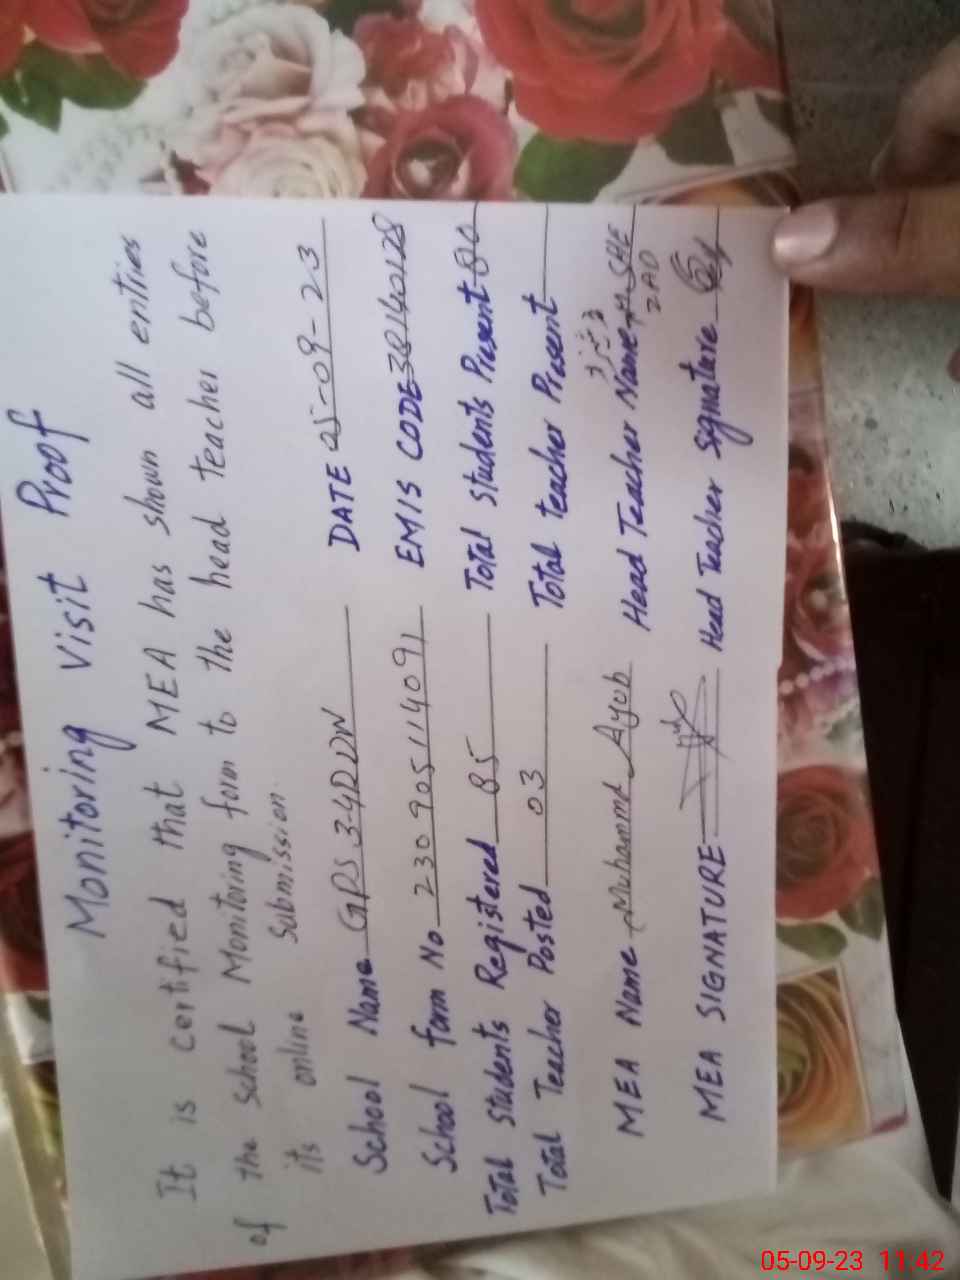 Monitoring Visit Proof
It is certified that MEA has shown all entries
of the School Monitoring form to the head teacher before
its online Submission.
School Name GPS 34D DN DATE 05-09-23
School form No 23090511409 EMIS CODE
Total Students Registered 85 Total Students Present 80
Total Teacher Posted 03 Total teacher Present
MEA Name Muhammd Ayub Head Teacher Name M. SHE
ZAD
MEA SIGNATURE Head Teacher Signature
05-09-23 11:42